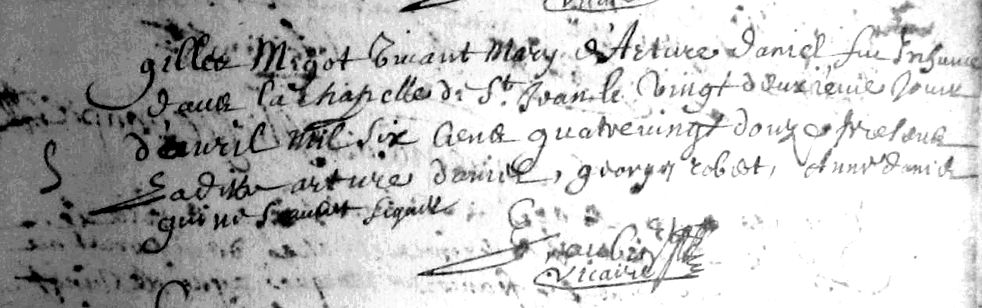 gilles Migot Vivant Mary d'Arture daniel fut Inhumé
dans la chapelle de St Jean le Vingt deuxieme Jour
d'auril mil six cens quatrevingt douze presens
Ladite arture daniel, george robet, anne daniel
qui ne scauent signer
aubin
Vicaire